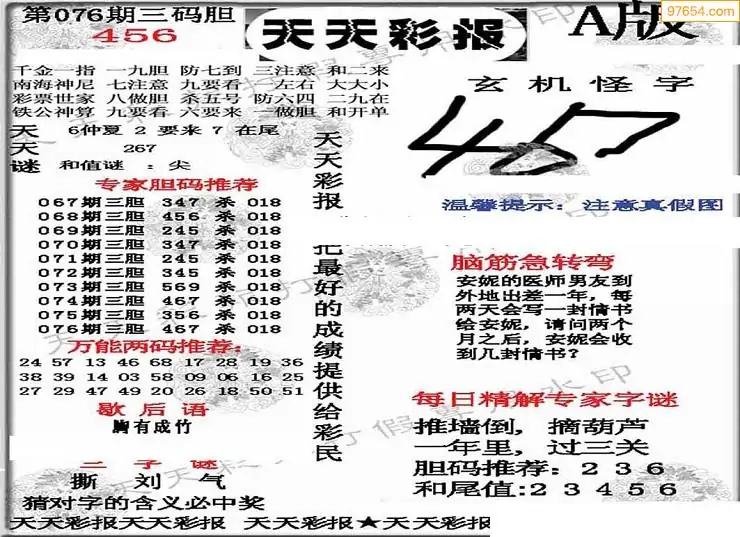 第076期三码胆
456
天天彩报
A版
97654.com
千金一指 一九胆 防七到 三注意 和二来
南海神尼 七注意 九要看 左右 大大小
彩票世家 八做胆 杀五号 防六四 二九在
铁公神算 九要看 六要来 一做胆 和开单
天 6仲夏 2 要来 7 在尾
天 267
谜 和值谜 ：尖
专家胆码推荐
067期三胆 347 杀 018
068期三胆 456 杀 018
069期三胆 245 杀 018
070期三胆 347 杀 018
071期三胆 245 杀 018
072期三胆 345 杀 018
073期三胆 569 杀 018
074期三胆 467 杀 018
075期三胆 356 杀 018
076期三胆 467 杀 018
万能两码推荐:
24 57 13 46 68 17 28 19 36
38 39 14 03 58 09 06 16 25
27 29 47 49 20 26 18 50 51
歇后语
胸有成竹
二字谜
撕 刘 气
猜对字的含义必中奖
天天彩报
把最好的成绩提供给彩民
玄机怪字
467
温馨提示：注意真假图
脑筋急转弯
安妮的医师男友到
外地出差一年，每
两天会写一封情书
给安妮，请问两个
月之后，安妮会收
到几封情书？
每日精解专家字谜
推墙倒，摘葫芦
一年里，过三关
胆码推荐：236
和尾值:23456
天天彩报天天彩报 天天彩报★天天彩报